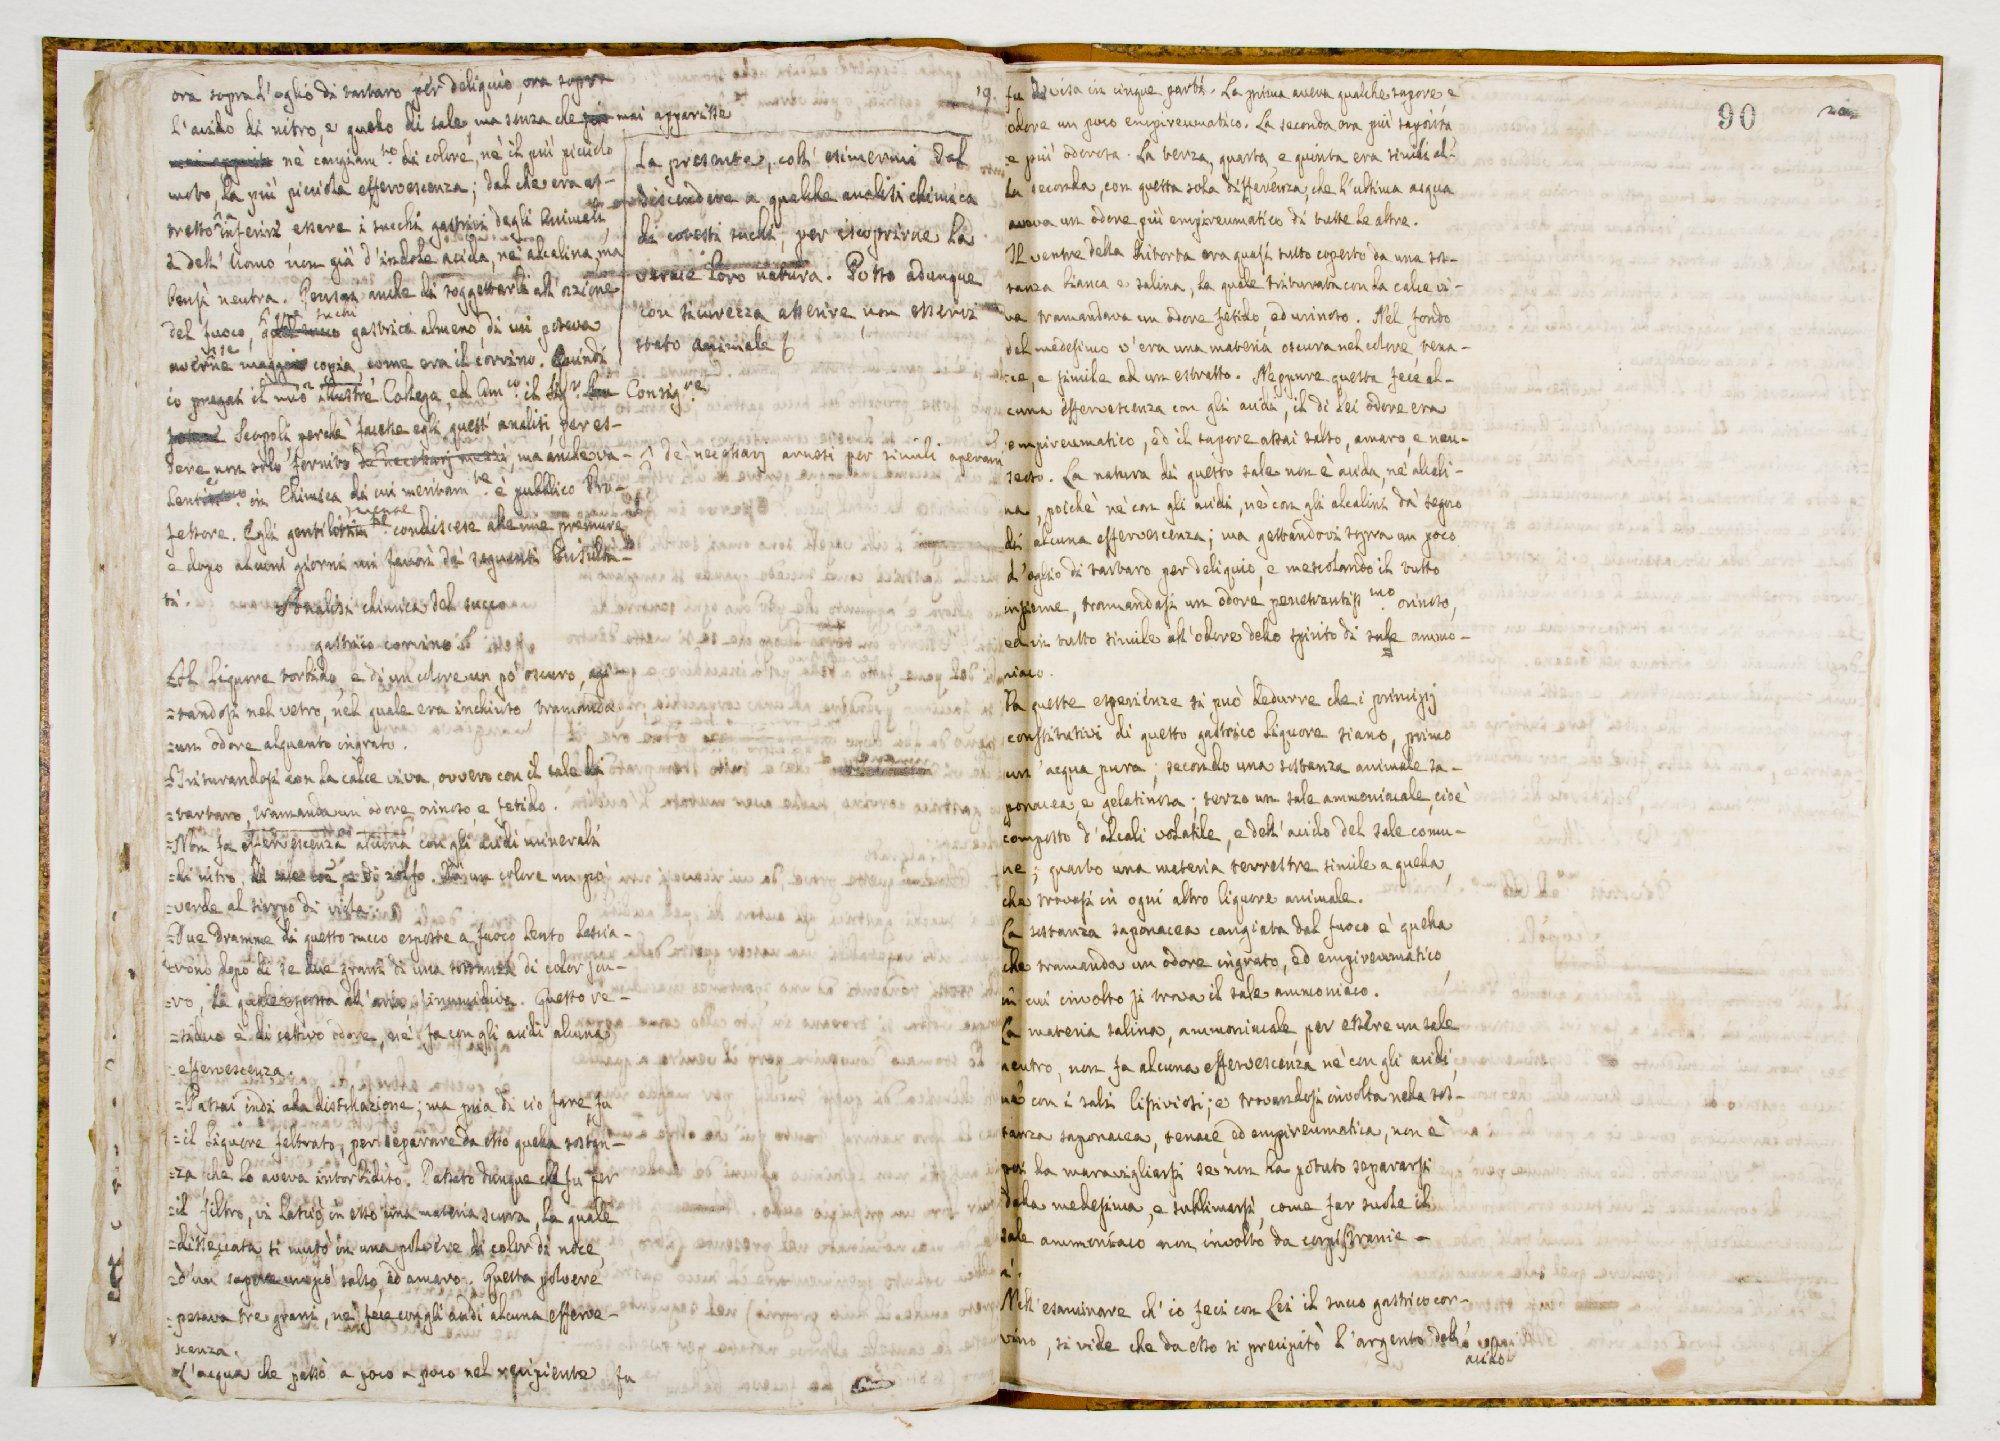 ora sopra l'oglio di tartaro per deliquio, ora sopra
l'acido di nitro, e quello di sale, ma senza che mai apparisse
nè cangiam.to di colore, nè il più picciolo
moto, la più picciola effervescenza; dal che era as-
tretto inferirà essere i succhi gastrici degli Animali,
e dell'Uomo non già d'indole acida, nè alcalina, ma
bensì neutra. Pensai anche di soggettarli all'azione
del fuoco, succhi gastrici almeno, di cui poteva
averne copia, come era il corvino. Quindi
io pregai il mio illustre Collega, ed Am.co il Sig.r Consig.re
Scopoli, perchè facesse egli quest'analisi, per es-
sere non solo fornito, ma anche va-
in Chimica di cui meritam.te è pubblico Pro-
fessore. Egli condiscese alle mie premure,
e dopo alcuni giorni mi favorì dei seguenti Risulta-
ti.
Analisi chimica del succo
gastrico corvino
Il liquore torbido, e di un colore un pò oscuro, agi-
=tandosi nel vetro, nel quale era inchiuso, tramanda
=un odore alquanto ingrato.
=Triturandosi con la calce viva, ovvero con il sale di
=tartaro, tramanda un odore orinoso, e fetido.
=Non fa effervescenza alcuna con gli acidi minerali
=di nitro, di sale com.e, e di zolfo. Dà un colore un pò
=verde al siroppo di viola.
=Due dramme di questo succo esposte a fuoco lento lascia-
=rono dopo di se due grani di una sostanza di color scu-
=ro, la quale esposta all'aria s'inumidiva. Questo re-
=siduo è di cattivo odore, nè fa con gli acidi alcuna
=effervescenza.
=Passai indi alla distillazione; ma pria di ciò fare, fu
=il liquore feltrato, per separare da esso quella sostan-
=za che lo aveva intorbidito. Passato dunque che fu per
=il filtro, vi lasciò in esso una materia scura, la quale
=disseccata si mutò in una polvere di color di noce,
=d'un sapore un pò salso, ed amaro. Questa polvere
=pesava tre grani, nè fece con gli acidi alcuna efferve-
scenza.
=L'acqua che passò a poco a poco nel recipiente fu
La presente, coll'esimermi dal
discendere a qualche analisi chimica
di cotesti succhi, per iscoprirne la
verace loro natura. Posso adunque
con sicurezza asserire non esservi
stato animale
de' necessarj arnesi per simili
90
fu divisa in cinque parti. La prima aveva qualche sapore e
odore un poco empireumatico. La seconda era più saporita
e più odorosa. La terza, quarta, e quinta era simile al-
la seconda, con questa sola differenza, che l'ultima acqua
aveva un odore più empireumatico di tutte le altre.
Il ventre della Ritorta era quasi tutto coperto da una sos-
tanza bianca e salina, la quale triturata con la calce vi-
va tramandava un odore fetido, ed urinoso. Nel fondo
del medesimo v'era una materia oscura nel colore, tena-
ce, e simile ad un estratto. Neppure questa fece al-
cuna effervescenza con gli acidi, il di lei odore era
empireumatico, ed il sapore assai salso, amaro, e nau-
seoso. La natura di questo sale non è acida, nè alcali-
na, poichè nè con gli acidi, nè con gli alcalini dà segno
di alcuna effervescenza; ma gettandovi sopra un poco
d'oglio di tartaro per deliquio, e mescolando il tutto
insieme, tramandasi un odore penetrantiss.mo orinoso,
ed in tutto simile all'odore dello spirito di sale ammo-
niaco.
Da queste esperienze si può dedurre che i principj
constitutivi di questo gastrico liquore siano, primo
un'acqua pura; secondo una sostanza animale sa-
ponacea, e gelatinosa; terzo un sale ammoniacale, cioè
composto d'alcali volatile, e dell'acido del sale comu-
ne; quarto una materia terrestre simile a quella,
che trovasi in ogni altro liquore animale.
La sostanza saponacea cangiata dal fuoco è quella
che tramanda un odore ingrato, ed empireumatico,
in cui involto si trova il sale ammoniaco.
La materia salina, ammoniacale, per essere un sale
neutro, non fa alcuna effervescenza nè con gli acidi,
nè con i sali lisiviosi; e trovandosi involta nella sos-
tanza saponacea, tenace, ed empireumatica, non è
poi da maravigliarsi se non ha potuto separarsi
dalla medesima, e sublimarsi, come far suole il
sale ammoniaco non involto da corpi stranie-
ri.
Nell'esaminare ch'io feci con Lei il succo gastrico cor-
vino, si vide che da esso si precipitò l'argento dall'
acido